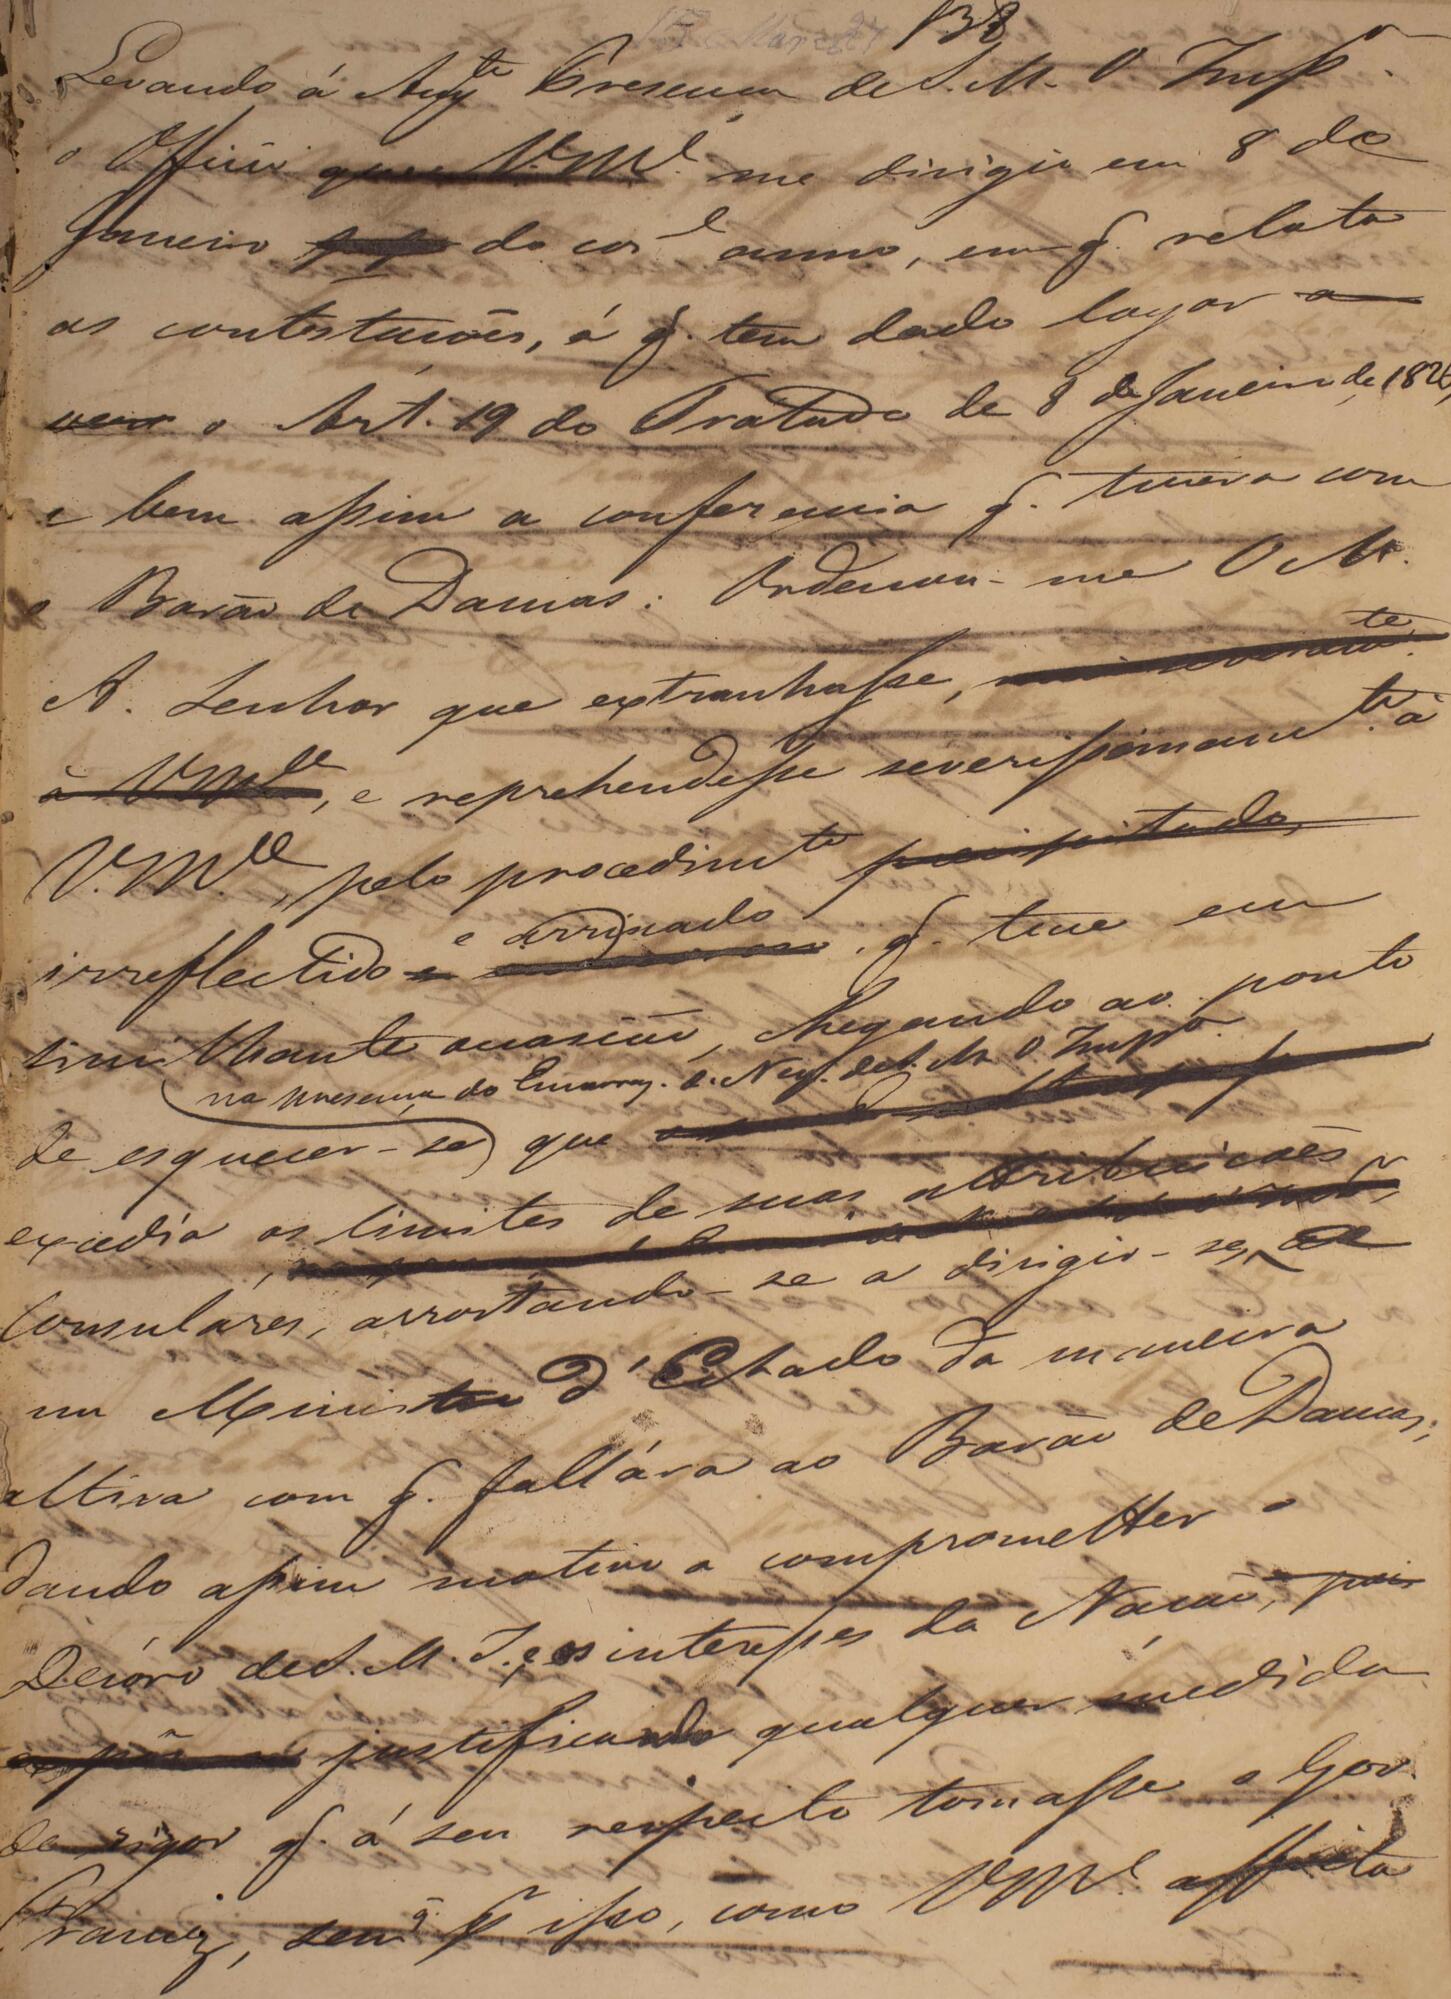 138
Levando á Aug.te Presença de S. M. O Imp.or
o Officio que V.M.ce me dirigio em 8 de
Janeiro do cor.e anno, em q. relata
as contestações, á q. tem dado lugar a
o Art. 19 do Tratado de 8 de Janeiro de 1826,
e bem assim a conferencia q. tivera com
o Barão de Damas: Ordenou-me O M.
A. Senhor que extranhasse, mui severam.te
á V.M.ce, e reprehendesse severissimam.te á
V.M.ce, pelo procedim.to precipitado,
e arrojado
irreflectido e q. teve em
similhante occasião, chegando ao ponto
na presença do Encarreg. de Neg. de S. M. O Imp.or
de esquecer-se que
excedia os limites de suas attribuições
Consuláres, arrostando-se a dirigir-se, a
um Ministro d'Estado da maneira
altiva com q. fallára ao Barão de Damas;
dando assim motivo a comprometter o
Decóro de S. M. I. e os interesses da Nação, pois
justificando qualquer medida
de rigor q. á seu respeito tomasse o Gov.
Francez, sem q. p.r isso, como V.M.ce affecta